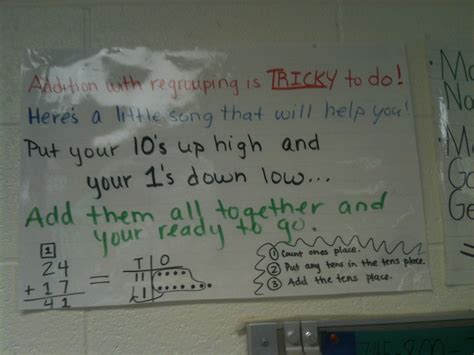 Addition with regrouping is TRICKY to do!
Here's a little song that will help you!
Put your 10's up high and
your 1's down low...
Add them all together and
your ready to go.
1
24
+ 17
41
=
T O
① Count ones place.
② Put any tens in the tens place.
③ Add the tens place.
Ma
No
M
Go
Ge